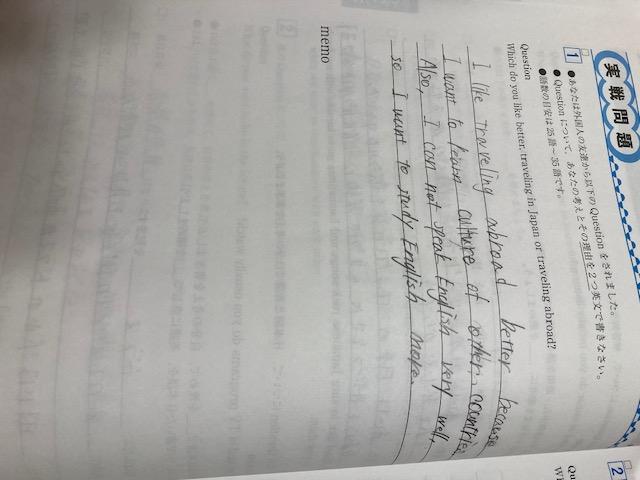 実戦問題
1
●あなたは外国人の友達から以下のQuestionをされました。
●Questionについて，あなたの考えとその理由を2つ英文で書きなさい。
●語数の目安は25語～35語です。
Question
Which do you like better, traveling in Japan or traveling abroad?
I like traveling abroad better because
I want to learn culture of other countries
Also, I can not speak English very well,
so I want to study English more.
memo
2
Qu